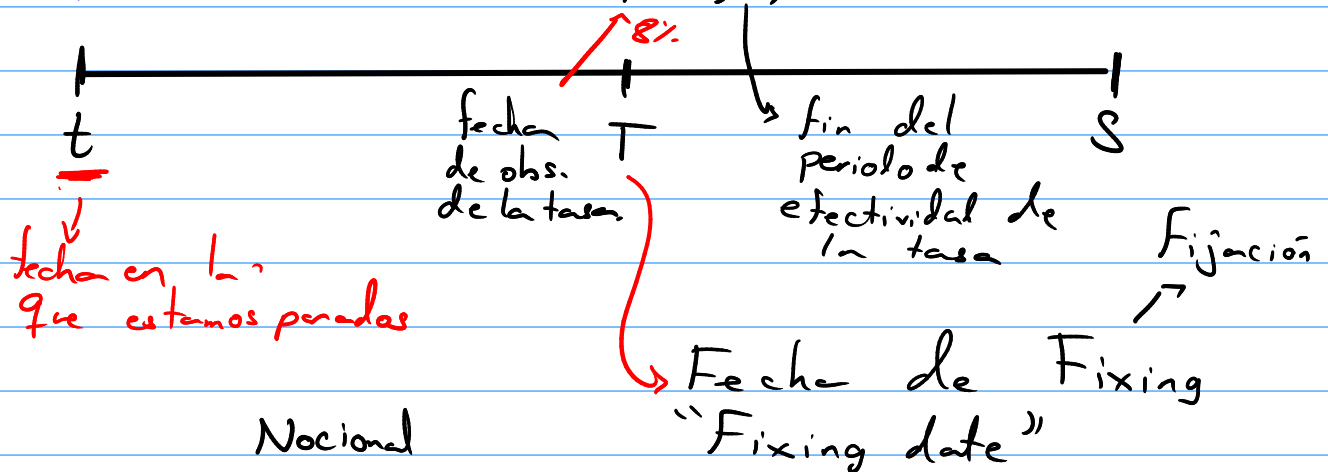 8%
t
fecha
de obs.
de la tasa.
T
fin del
periodo de
efectividad de
la tasa
S
fecha en la
que estamos parados
Fijación
Fecha de Fixing
"Fixing date"
Nocional